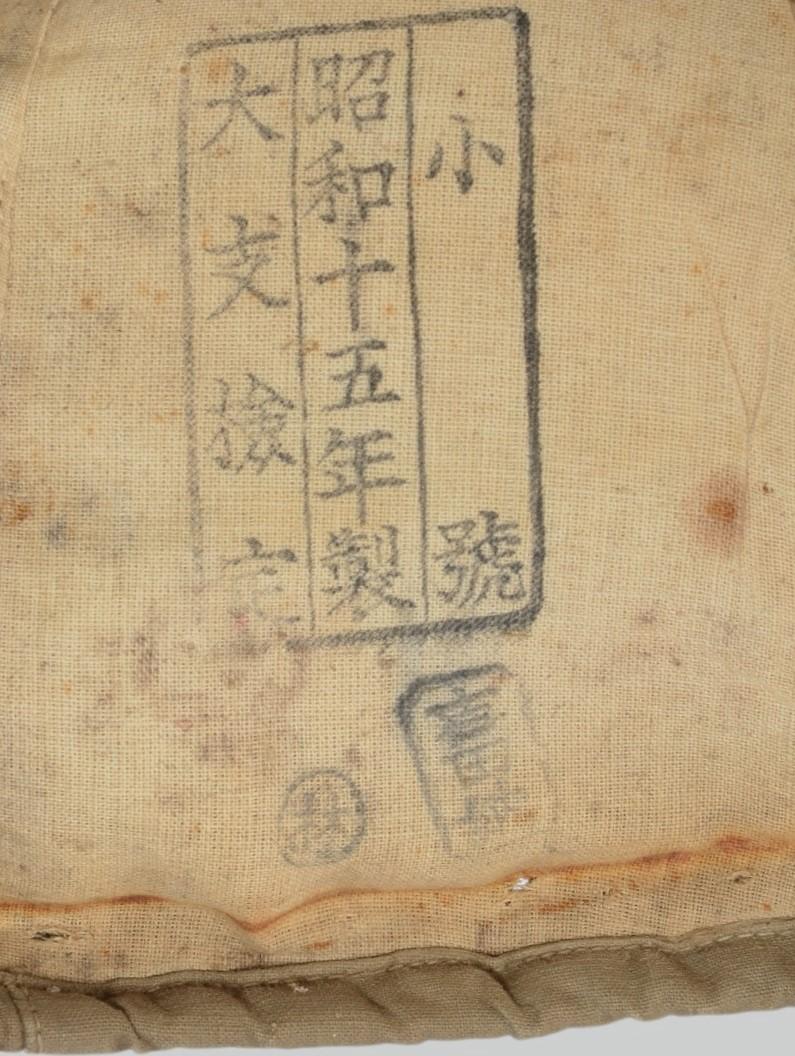 小號
昭和十五年製
大支検定